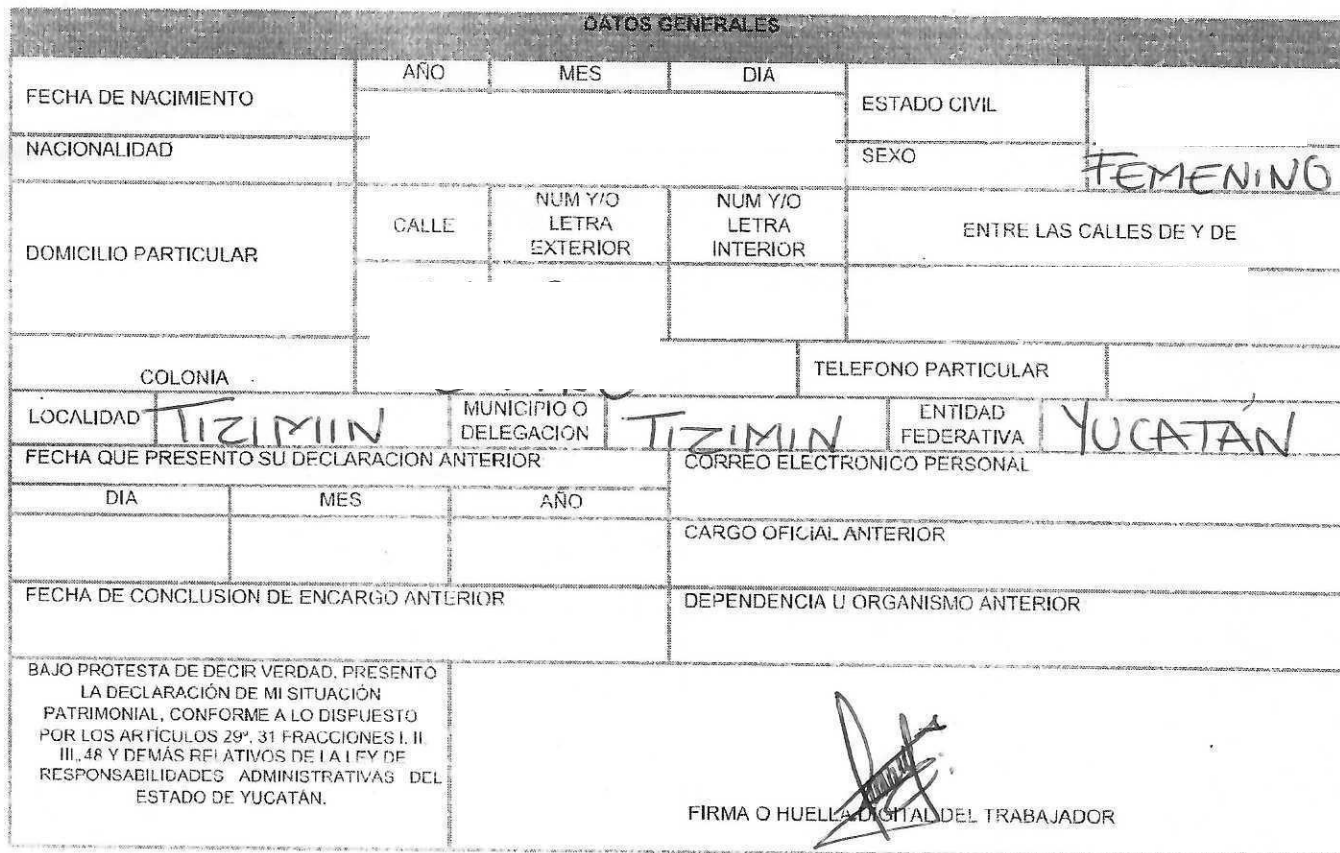 DATOS GENERALES
FECHA DE NACIMIENTO
AÑO MES DIA
ESTADO CIVIL
NACIONALIDAD
SEXO FEMENINO
DOMICILIO PARTICULAR
CALLE
NUM Y/O
LETRA
EXTERIOR
NUM Y/O
LETRA
INTERIOR
ENTRE LAS CALLES DE Y DE
COLONIA
TELEFONO PARTICULAR
LOCALIDAD TIZIMIN
MUNICIPIO O
DELEGACION
TIZIMIN
ENTIDAD
FEDERATIVA
YUCATÁN
FECHA QUE PRESENTO SU DECLARACION ANTERIOR
CORREO ELECTRONICO PERSONAL
DIA MES AÑO
CARGO OFICIAL ANTERIOR
FECHA DE CONCLUSION DE ENCARGO ANTERIOR
DEPENDENCIA U ORGANISMO ANTERIOR
BAJO PROTESTA DE DECIR VERDAD, PRESENTO
LA DECLARACIÓN DE MI SITUACIÓN
PATRIMONIAL, CONFORME A LO DISPUESTO
POR LOS ARTÍCULOS 29º, 31 FRACCIONES I, II
III, 48 Y DEMÁS RELATIVOS DE LA LEY DE
RESPONSABILIDADES ADMINISTRATIVAS DEL
ESTADO DE YUCATÁN.
FIRMA O HUELLA DIGITAL DEL TRABAJADOR